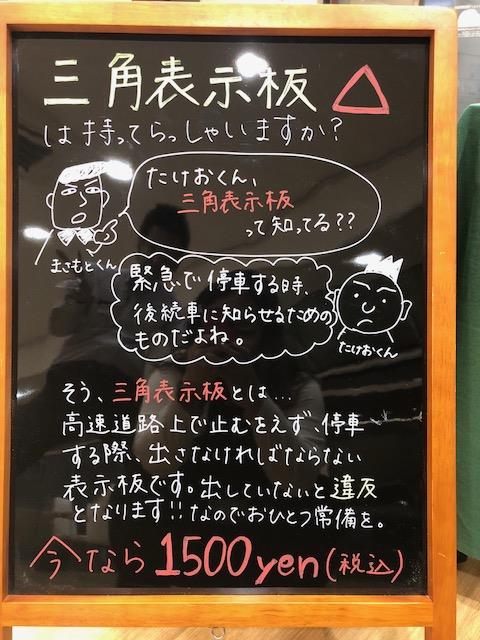 三角表示板
は持ってらっしゃいますか？
たけおくん、
三角表示板
って知ってる??
まさもとくん
緊急で停車する時、
後続車に知らせるための
ものだよね。
たけおくん
そう、三角表示板とは…
高速道路上で止むをえず、停車
する際、出さなければならない
表示板です。出していないと違反
となります!!なのでおひとつ常備を。
今なら1500yen(税込)